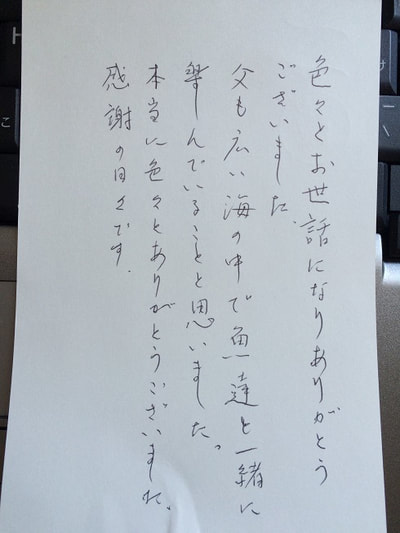 色々とお世話になりありがとう
ございました。
父も広い海の中で魚達と一緒に
楽しんでいることと思いました。
本当に色々とありがとうございました。
感謝の日々です。